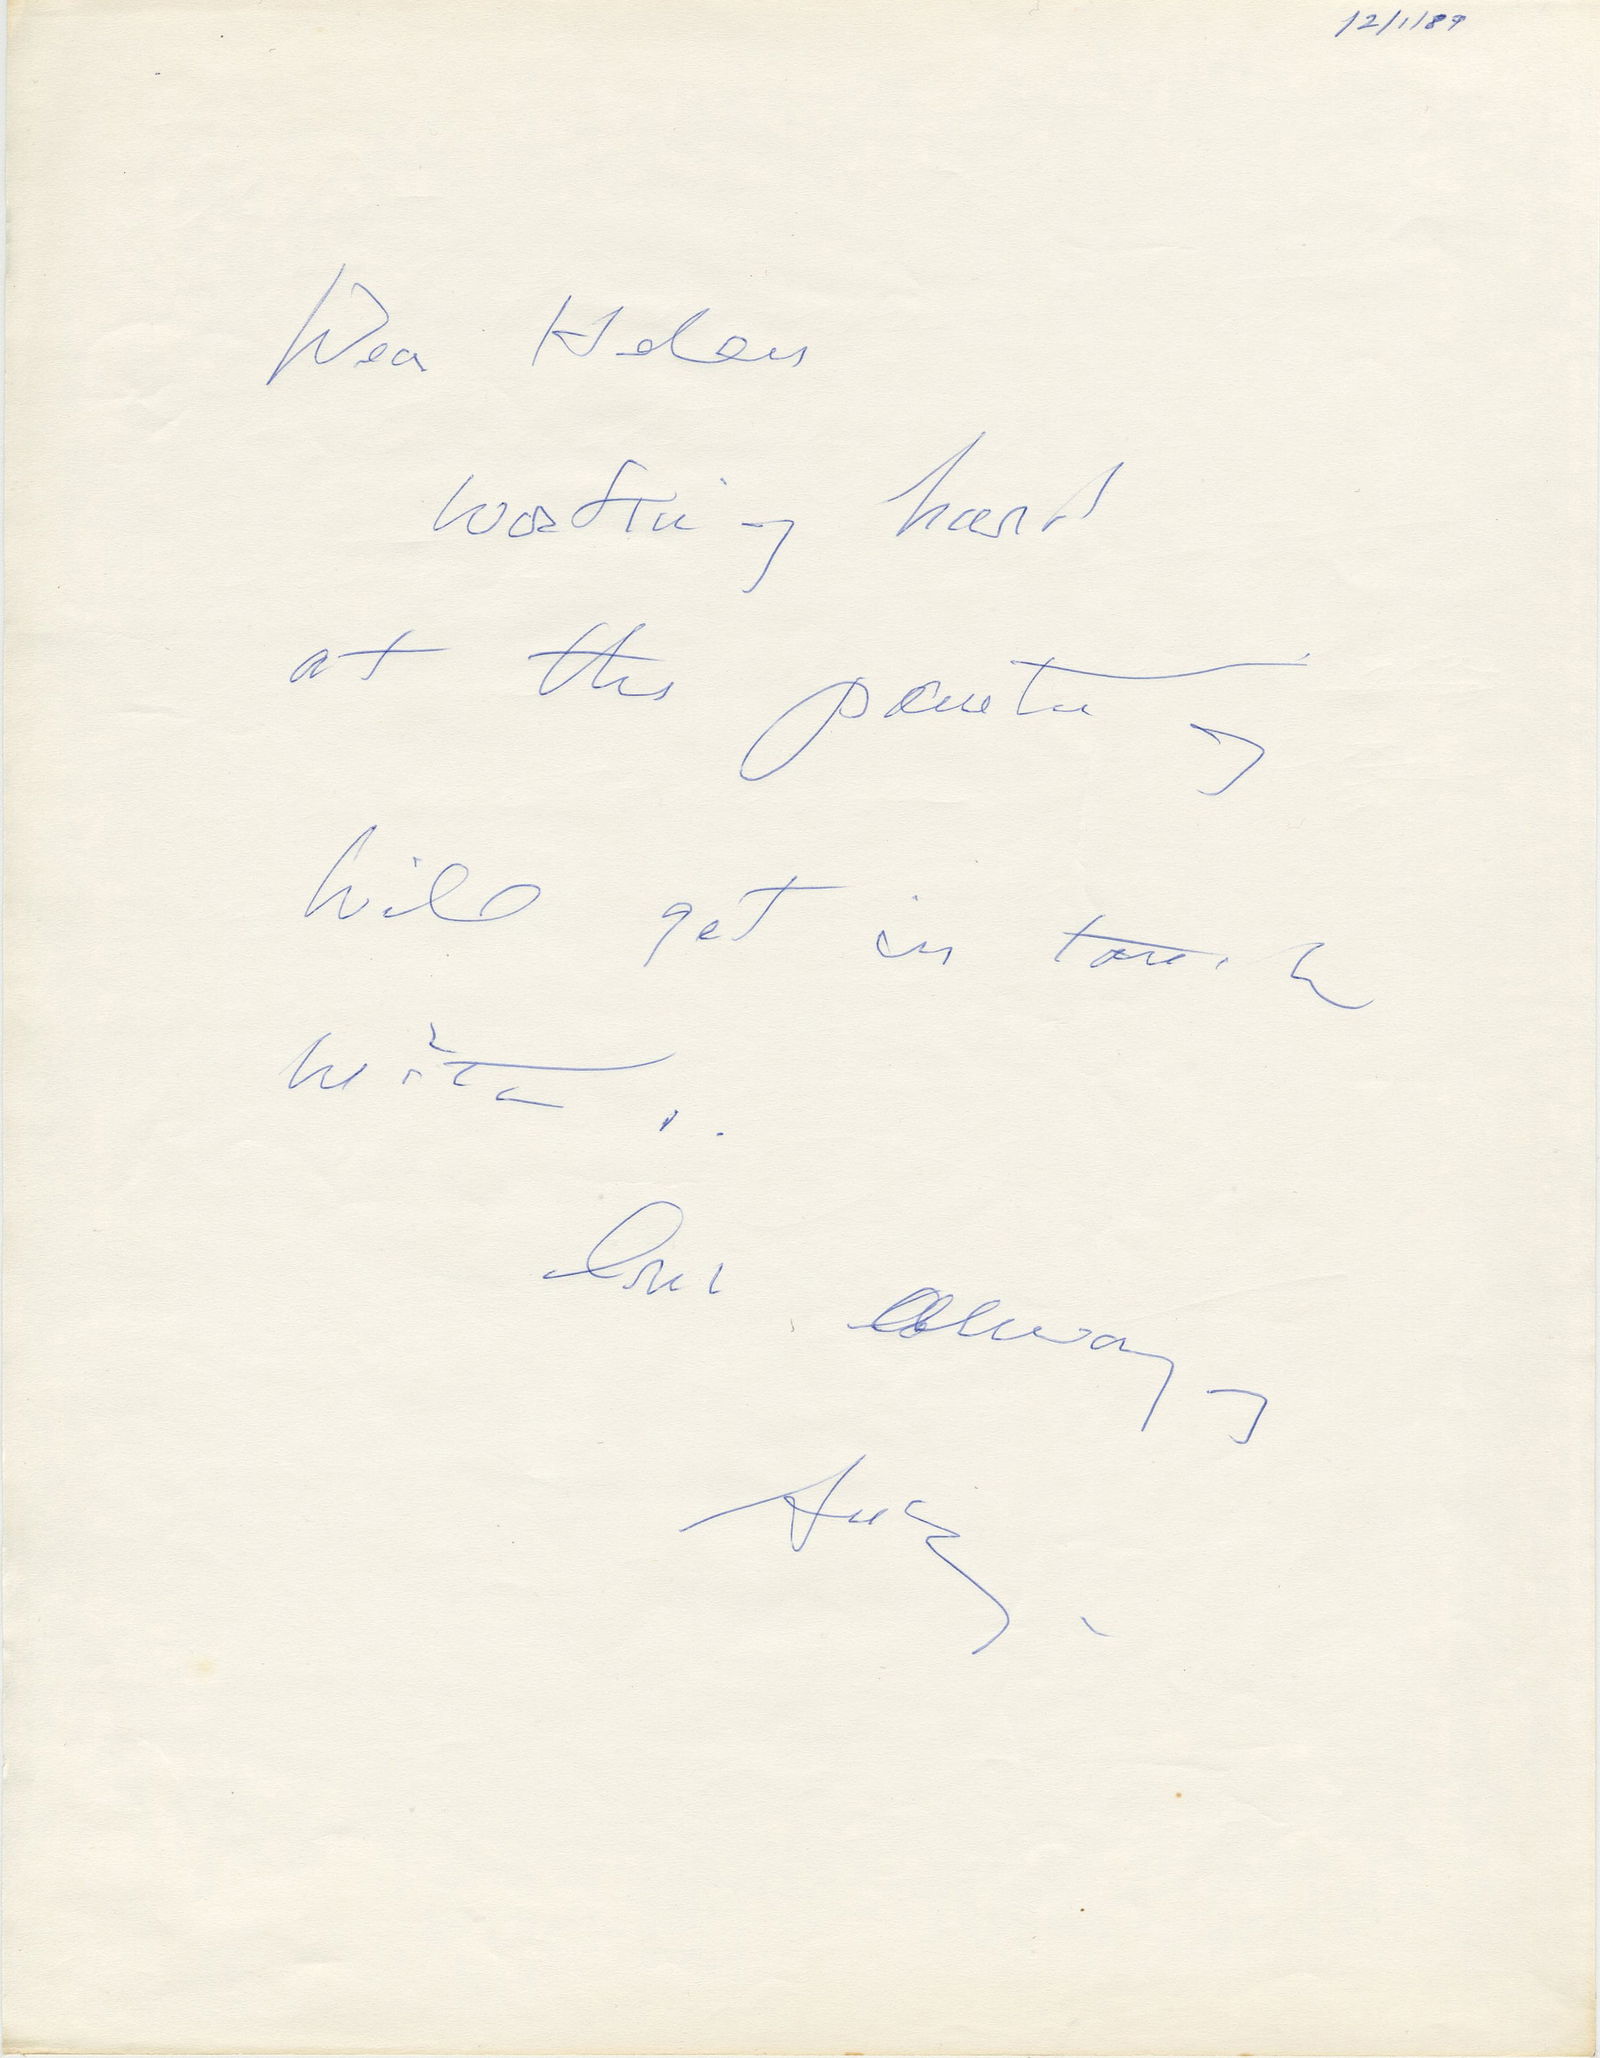 12/1/89
Dear Helen
working hard
at the painting
will get in touch
with
Love always